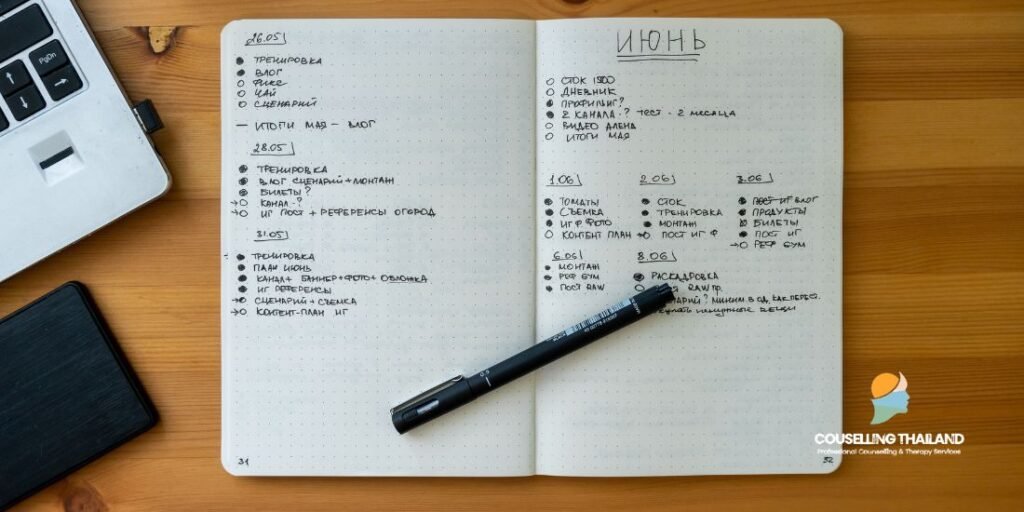 26.05
ТРЕНИРОВКА
ВЛОГ
ЧАЙ
СЦЕНАРИЙ
— ИТОГИ МАЯ – ВЛОГ
28.05
ТРЕНИРОВКА
ВЛОГ СЦЕНАРИЙ + МОНТАЖ
БИЛЕТЫ?
КАНАЛ - ?
ИГ ПОСТ + РЕФЕРЕНСЫ ОГОРОД
31.05
ТРЕНИРОВКА
ПЛАН ИЮНЬ
КАНАЛ + БАННЕР + ФОТО + ОБЛОЖКА
ИГ РЕФЕРЕНСЫ
СЦЕНАРИЙ + СЪЕМКА
КОНТЕНТ-ПЛАН ИГ
31
ИЮНЬ
СТОК 1500
ДНЕВНИК
ПРОФИЛИНГ?
2 КАНАЛА - ? ТЕСТ - 2 МЕСЯЦА
ВИДЕО АЛЕНА
ИТОГИ МАЯ
1.06
ТОМАТЫ
СЪЕМКА
ИГ Ф ФОТО
КОНТЕНТ ПЛАН
2.06
СТОК
ТРЕНИРОВКА
МОНТАЖ
ПОСТ ИГ Ф
3.06
ПОСТ ИГ ВЛОГ
ПРОДУКТЫ
БИЛЕТЫ
ПОСТ ИГ
РЕФ БУМ
6.06
МОНТАЖ
РЕФ БУМ
ПОСТ RAW
8.06
РАСКАДРОВКА
RAW ПР.
? МИНИМ В ОД, КАК ПЕРЕБ.
32
PgDn
COUSELLING THAILAND
Professional Counselling & Therapy Services